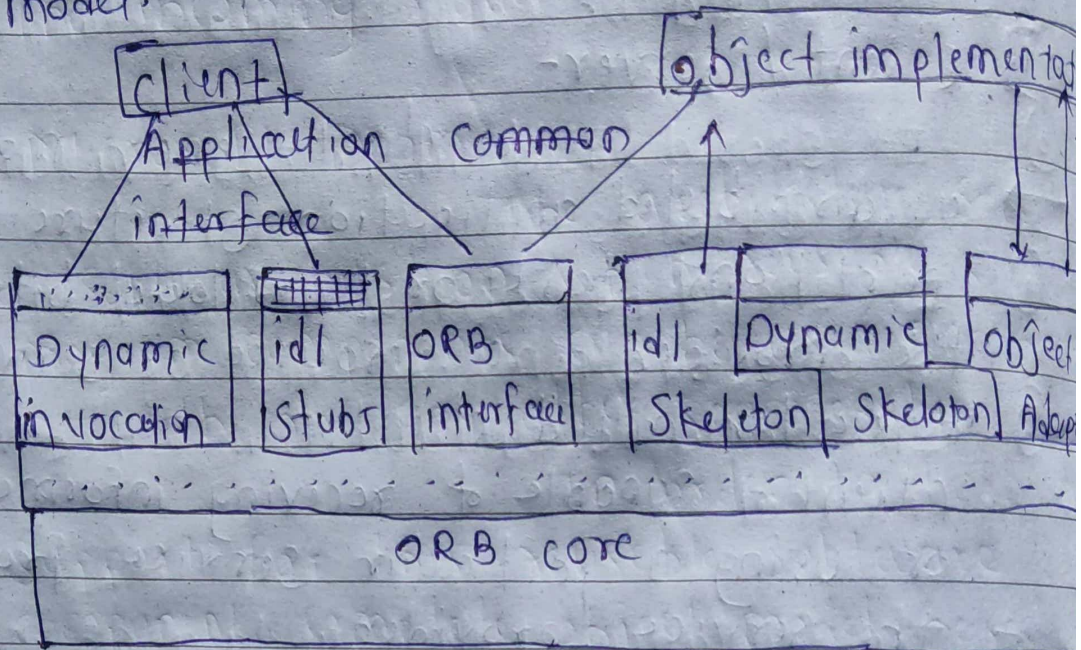 model.
client
object implementat
Application common
interface
Dynamic
invocation
idl
stubs
ORB
interface
idl
skeleton
Dynamic
skeloton
object
Adap
ORB core